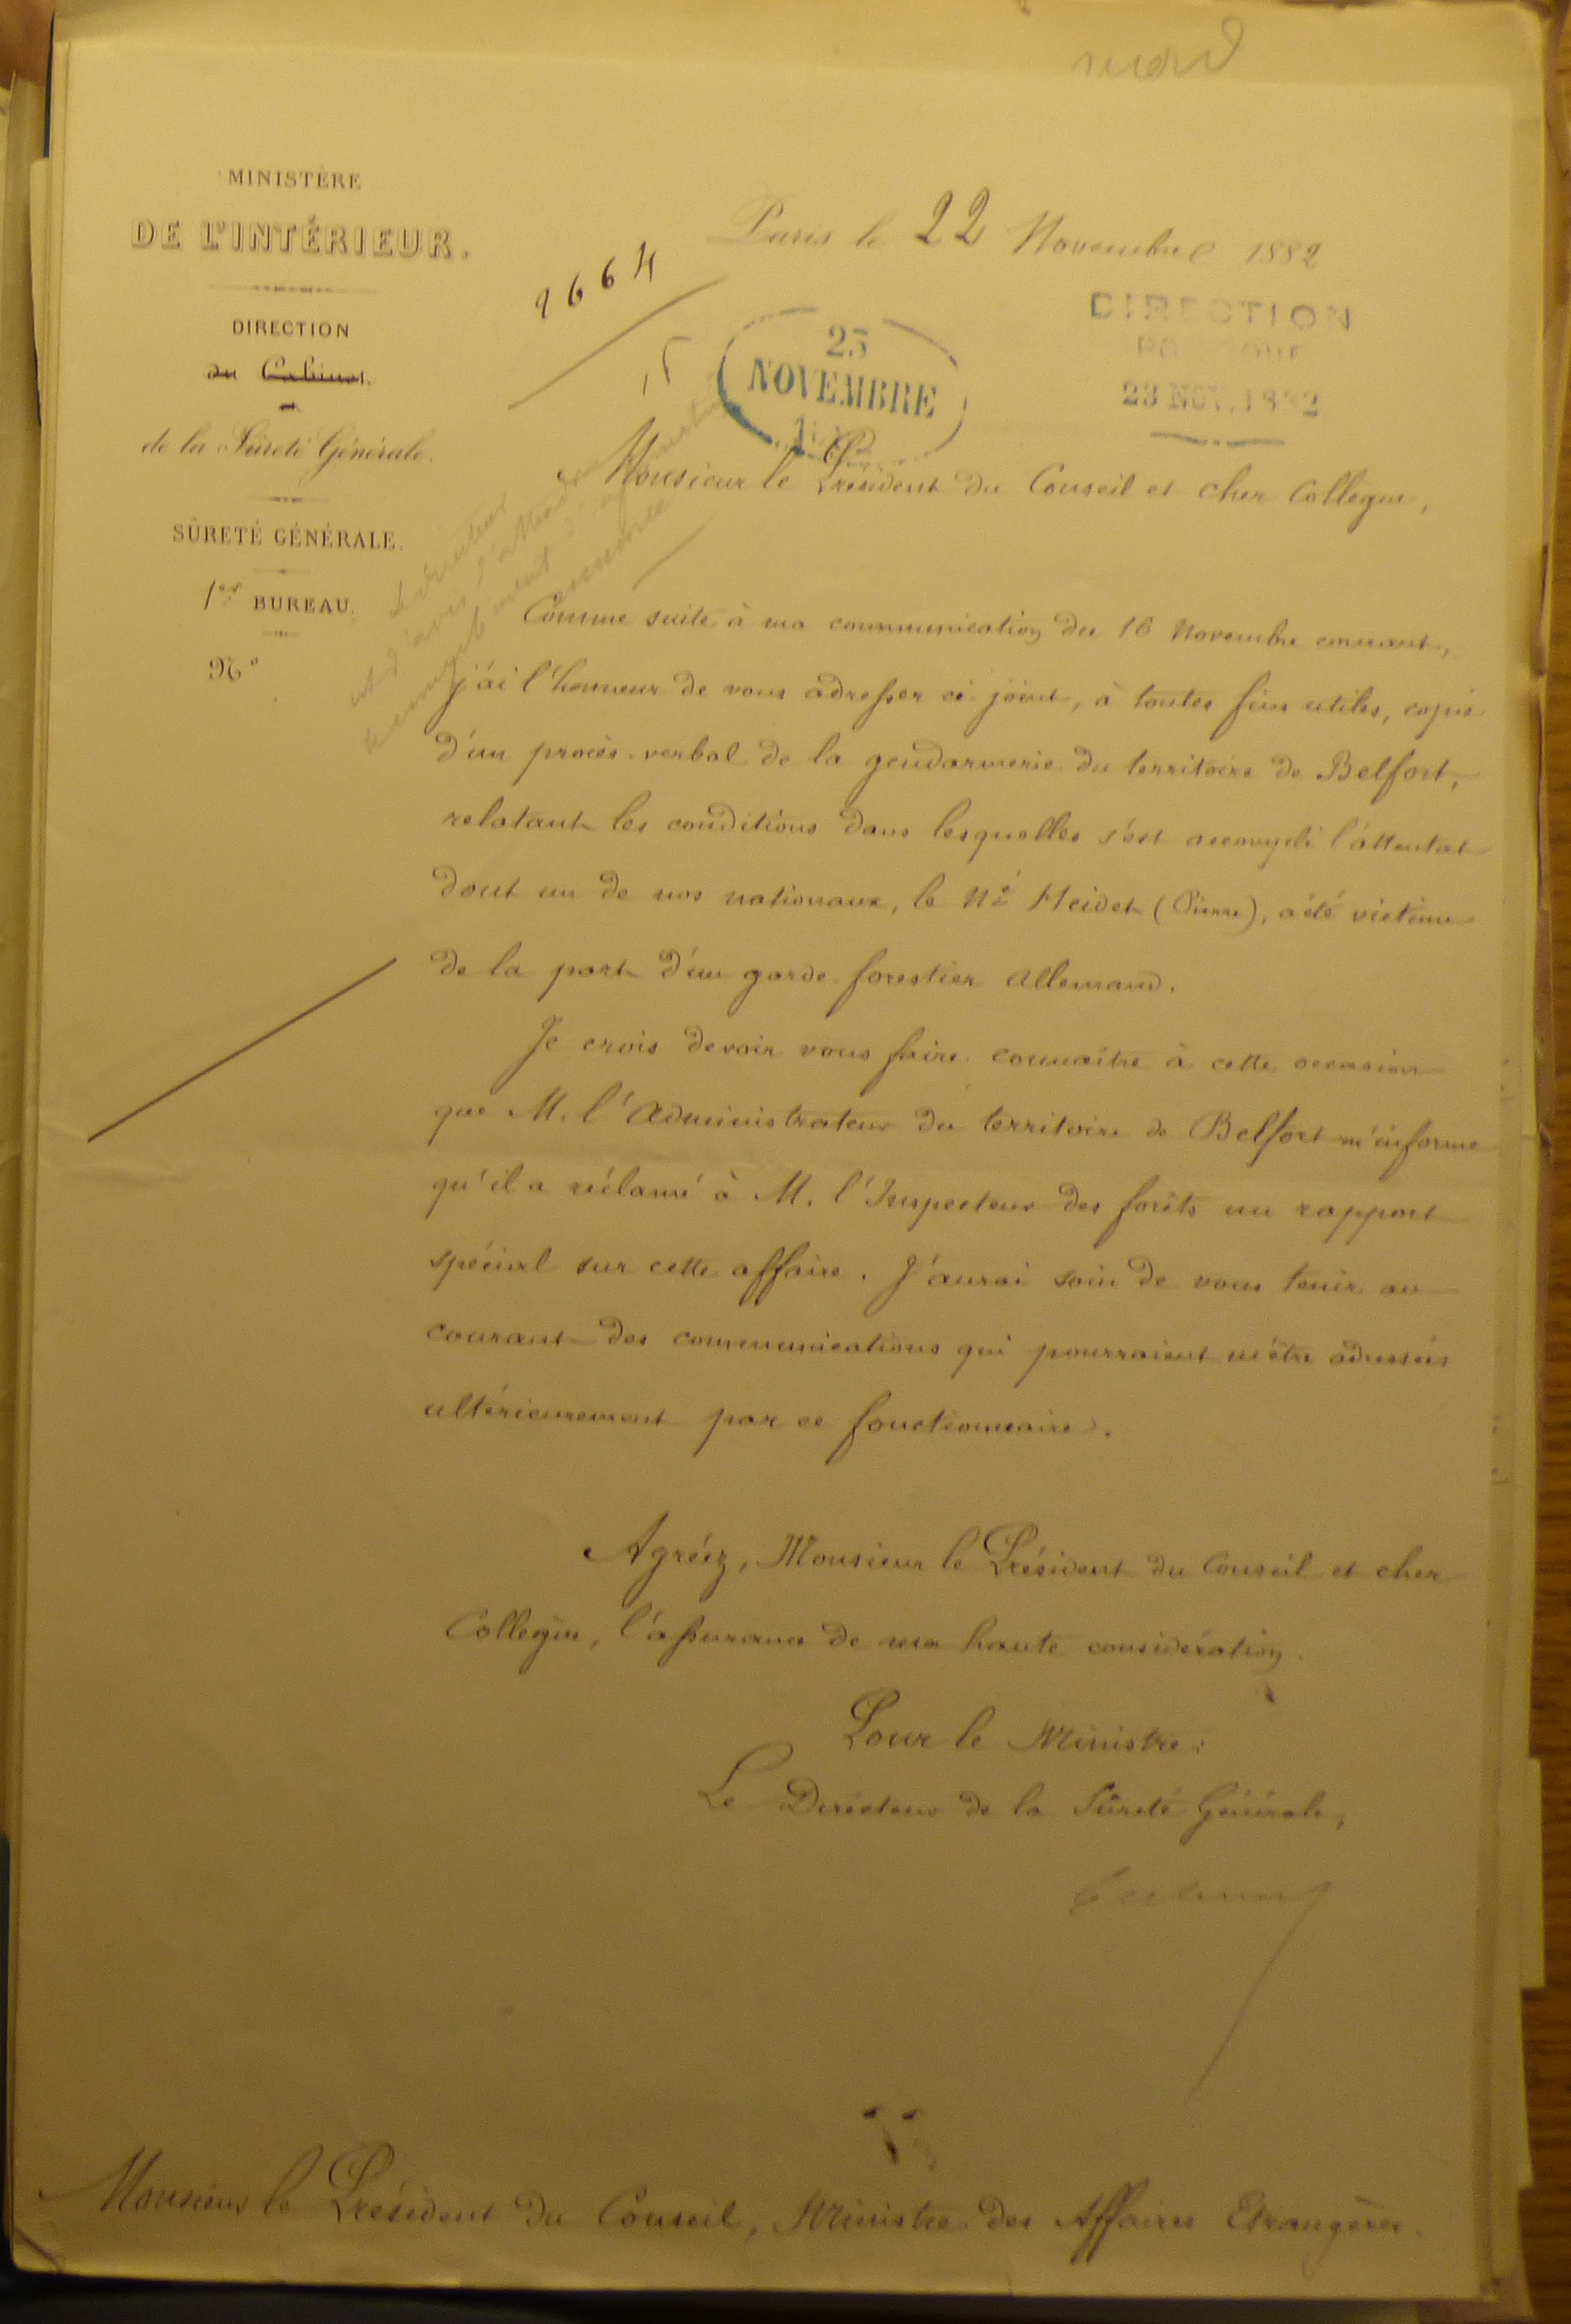 nord
MINISTÈRE
DE L'INTÉRIEUR.
DIRECTION
du Cabinet.
de la Sûreté Générale.
SÛRETÉ GÉNÉRALE.
1er BUREAU.
No
Paris le 22 Novembre 1882
2664
15
23
NOVEMBRE
DIRECTION
POLITIQUE
23 NOV. 1882
Monsieur le Président du Conseil et cher Collègue,
Comme suite à ma communication du 16 Novembre courant,
j'ai l'honneur de vous adresser ci joint, à toutes fins utiles, copie
d'un procès-verbal de la gendarmerie du territoire de Belfort,
relatant les conditions dans lesquelles s'est accompli l'attentat
dont un de nos nationaux, le Né Heidet (Pierre), a été victime
de la part d'un garde forestier allemand.
Je crois devoir vous faire connaître à cette occasion
que M. l'Administrateur du territoire de Belfort m'informe
qu'il a réclamé à M. l'Inspecteur des forêts un rapport
spécial sur cette affaire. J'aurai soin de vous tenir au
courant des communications qui pourraient m'être adressées
ultérieurement par ce fonctionnaire.
Agréez, Monsieur le Président du Conseil et cher
Collègue, l'assurance de ma haute considération.
Pour le Ministre:
Le Directeur de la Sûreté Générale,
Monsieur le Président du Conseil, Ministre des Affaires Etrangères.